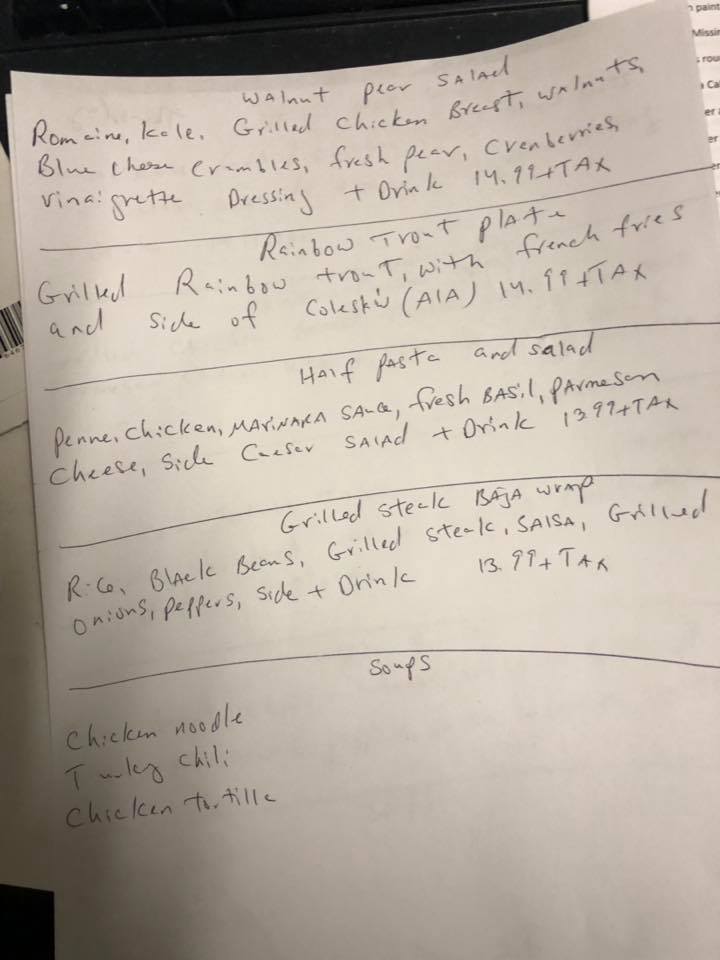 Walnut pear SALAD
Romaine, kale, Grilled Chicken Breast, walnuts,
Blue cheese crumbles, fresh pear, Cranberries,
vinaigrette Dressing + Drink 14.99+TAX
Rainbow Trout plate
Grilled Rainbow trout, with french fries
and side of Coleslw (AIA) 14.99+TAX
HAlf pasta and salad
Penne, Chicken, MARiNARA SAuce, fresh BASil, pArmesan
Cheese, Side Caesar SAlAd + Drink 13.99+TAX
Grilled steak BAJA wrap
Rice, BlAck Beans, Grilled steak, SAlSA, Grilled
Onions, peppers, Side + Drink 13.99+TAx
Soups
Chicken noodle
Turkey chili
Chicken tortilla
paint
Missin
rou
Ca
er
er